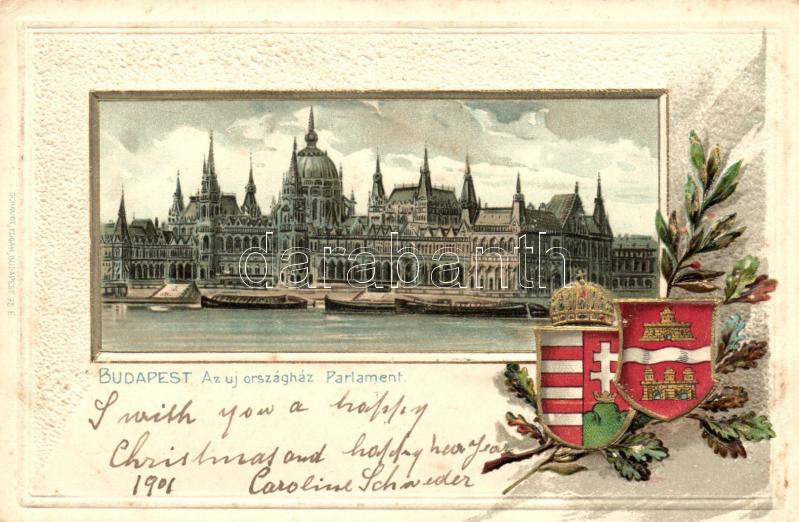 darabanth
BUDAPEST Az uj országház. Parlament.
I with you a happy
Christmas and happy new Year
1901 Caroline Schweder